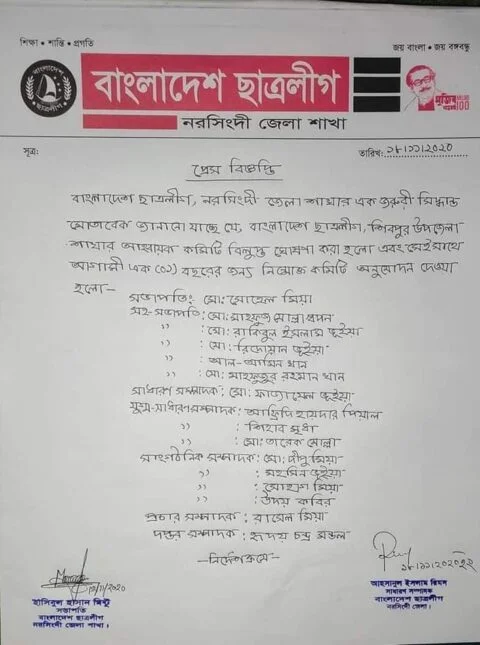 শিক্ষা • শান্তি • প্রগতি
জয় বাংলা • জয় বঙ্গবন্ধু
বাংলাদেশ ছাত্রলীগ
বাংলাদেশ ছাত্রলীগ
মুজিব 100
নরসিংদী জেলা শাখা
সূত্র:
তারিখ: ১৮/১১/২০২০
প্রেস বিজ্ঞপ্তি
বাংলাদেশ ছাত্রলীগ, নরসিংদী জেলা শাখার এক জরুরী সিদ্ধান্ত
মোতাবেক জানানো যাচ্ছে যে, বাংলাদেশ ছাত্রলীগ, শিবপুর উপজেলা
শাখার আহ্বায়ক কমিটি বিলুপ্ত ঘোষণা করা হলো এবং সেই সাথে
আগামী এক (০১) বছরের জন্য নিম্নোক্ত কমিটি অনুমোদন দেওয়া
হলো-
সভাপতি: মো: সোহেল মিয়া
সহ-সভাপতি: মো: মাহফুজ মোল্লা
,, : মো: রাকিবুল ইসলাম ভূইয়া
,, : মো: রিদোয়ান ভূইয়া
,, : আল-আমিন খান
,, : মো: মাহফুজুর রহমান খান
সাধারণ সম্পাদক: মো: ভূইয়া
যুগ্ম-সাধারণ সম্পাদক: আফ্রিদি হায়দার পিয়াল
,, : শিহাব মৃধা
,, : মো: তারেক মোল্লা
সাংগঠনিক সম্পাদক: মো: দীপু মিয়া
,, : মহসিন ভূইয়া
,, : সোহাগ মিয়া
,, : উদয় কবির
প্রচার সম্পাদক: রাসেল মিয়া
দপ্তর সম্পাদক: হৃদয় চন্দ্র মন্ডল
-নির্দেশক্রমে-
১৮/১১/২০২০
হাসিবুল হাসান মিন্টু
সভাপতি
বাংলাদেশ ছাত্রলীগ
নরসিংদী জেলা শাখা।
আহসানুল ইসলাম রিমন
সাধারণ সম্পাদক
বাংলাদেশ ছাত্রলীগ
নরসিংদী জেলা।